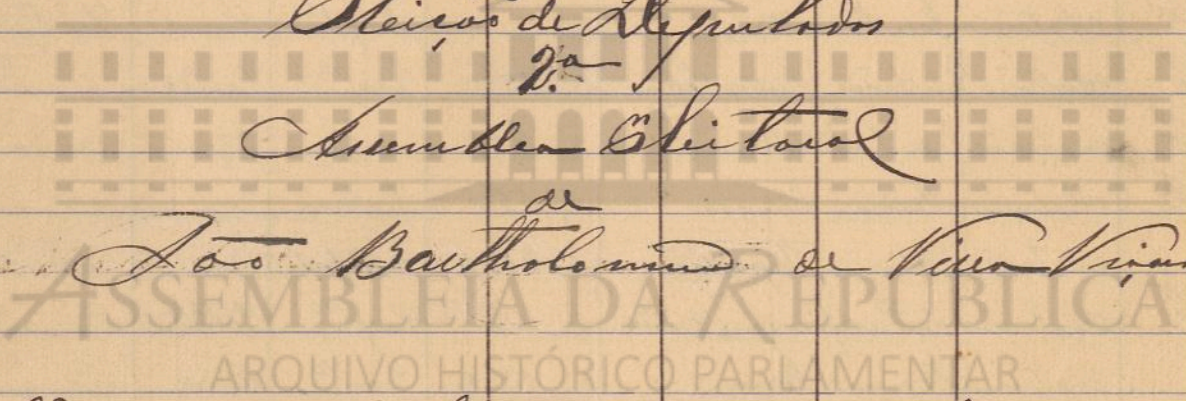 Eleição de Deputados
2.ª
Assemblea Eleitoral
de
São Bartholomeu de Villa Viçosa
ASSEMBLEIA DA REPÚBLICA
ARQUIVO HISTÓRICO PARLAMENTAR